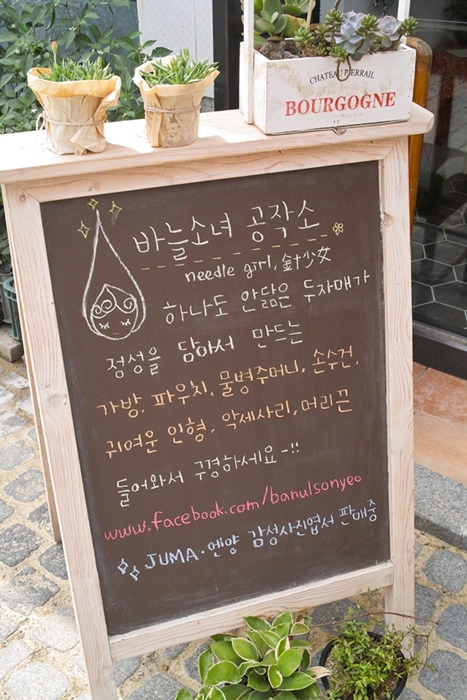 CHATEAU PIERRAIL
BOURGOGNE
바늘소녀 공작소
needle girl, 針少女
하나도 안닮은 두자매가
정성을 담아서 만드는
가방, 파우치, 물병주머니, 손수건,
귀여운 인형, 악세사리, 머리끈
들어와서 구경하세요~!!
www.facebook.com/banulsonyeo
JUMA·엔양 감성사진엽서 판매중